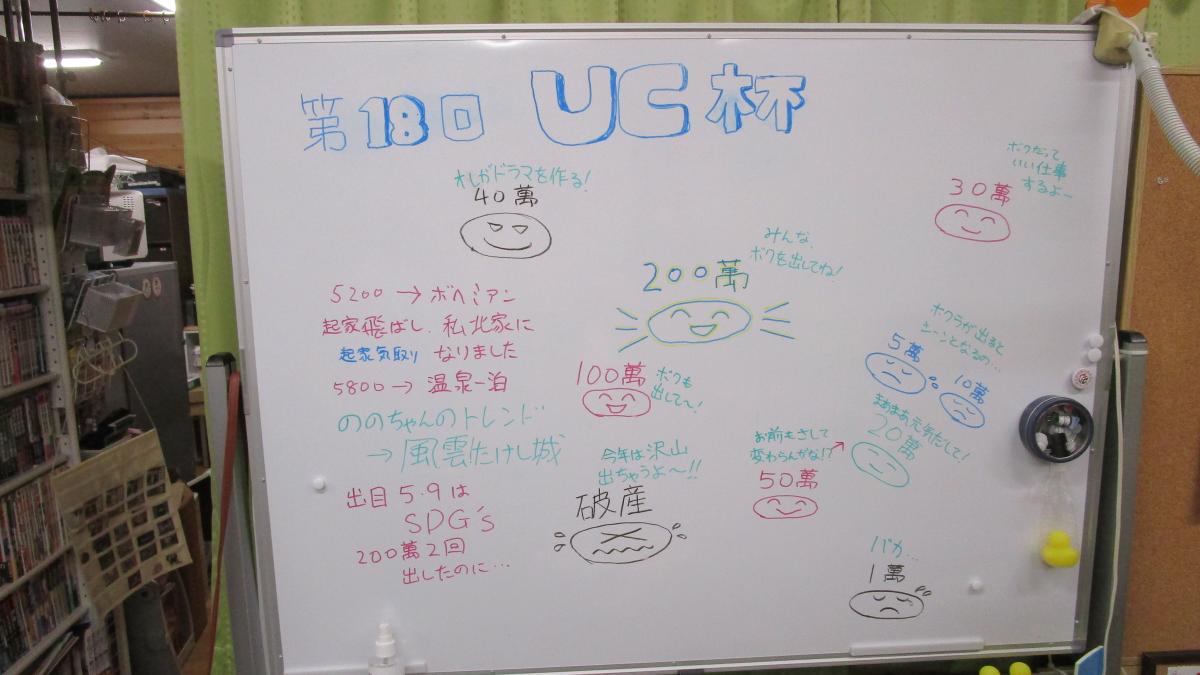 第18回 UC杯
オレがドラマを作る!
40萬
ボクだって
いい仕事
するよー
30萬
みんな、
ボクを出してね!
200萬
5200→ボヘミアン
起家飛ばし、私北家に
起家気取り なりました
5800→温泉一泊
ののちゃんのトレンド
→風雲たけし城
出目5.9は
SDG's
200萬2回
出したのに…
100萬
ボクも
出して〜!
今年は沢山
出ちゃうよ〜!!
破産
ボクラが出ると
さーンとなるの…
5萬
10萬
まあまあ元気だして!
20萬
お前もさして
変わらんがな!?
50萬
バカ…
1萬